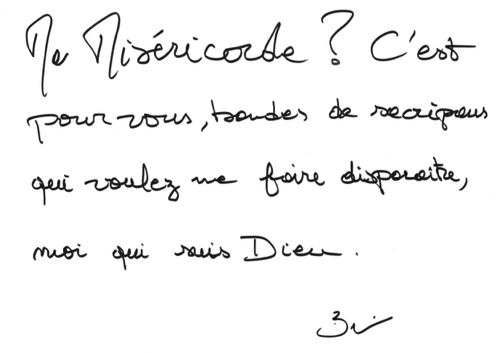 Ma Miséricorde ? C'est
pour vous, bandes de sacripans
qui voulez me faire disparaître,
moi qui suis Dieu.